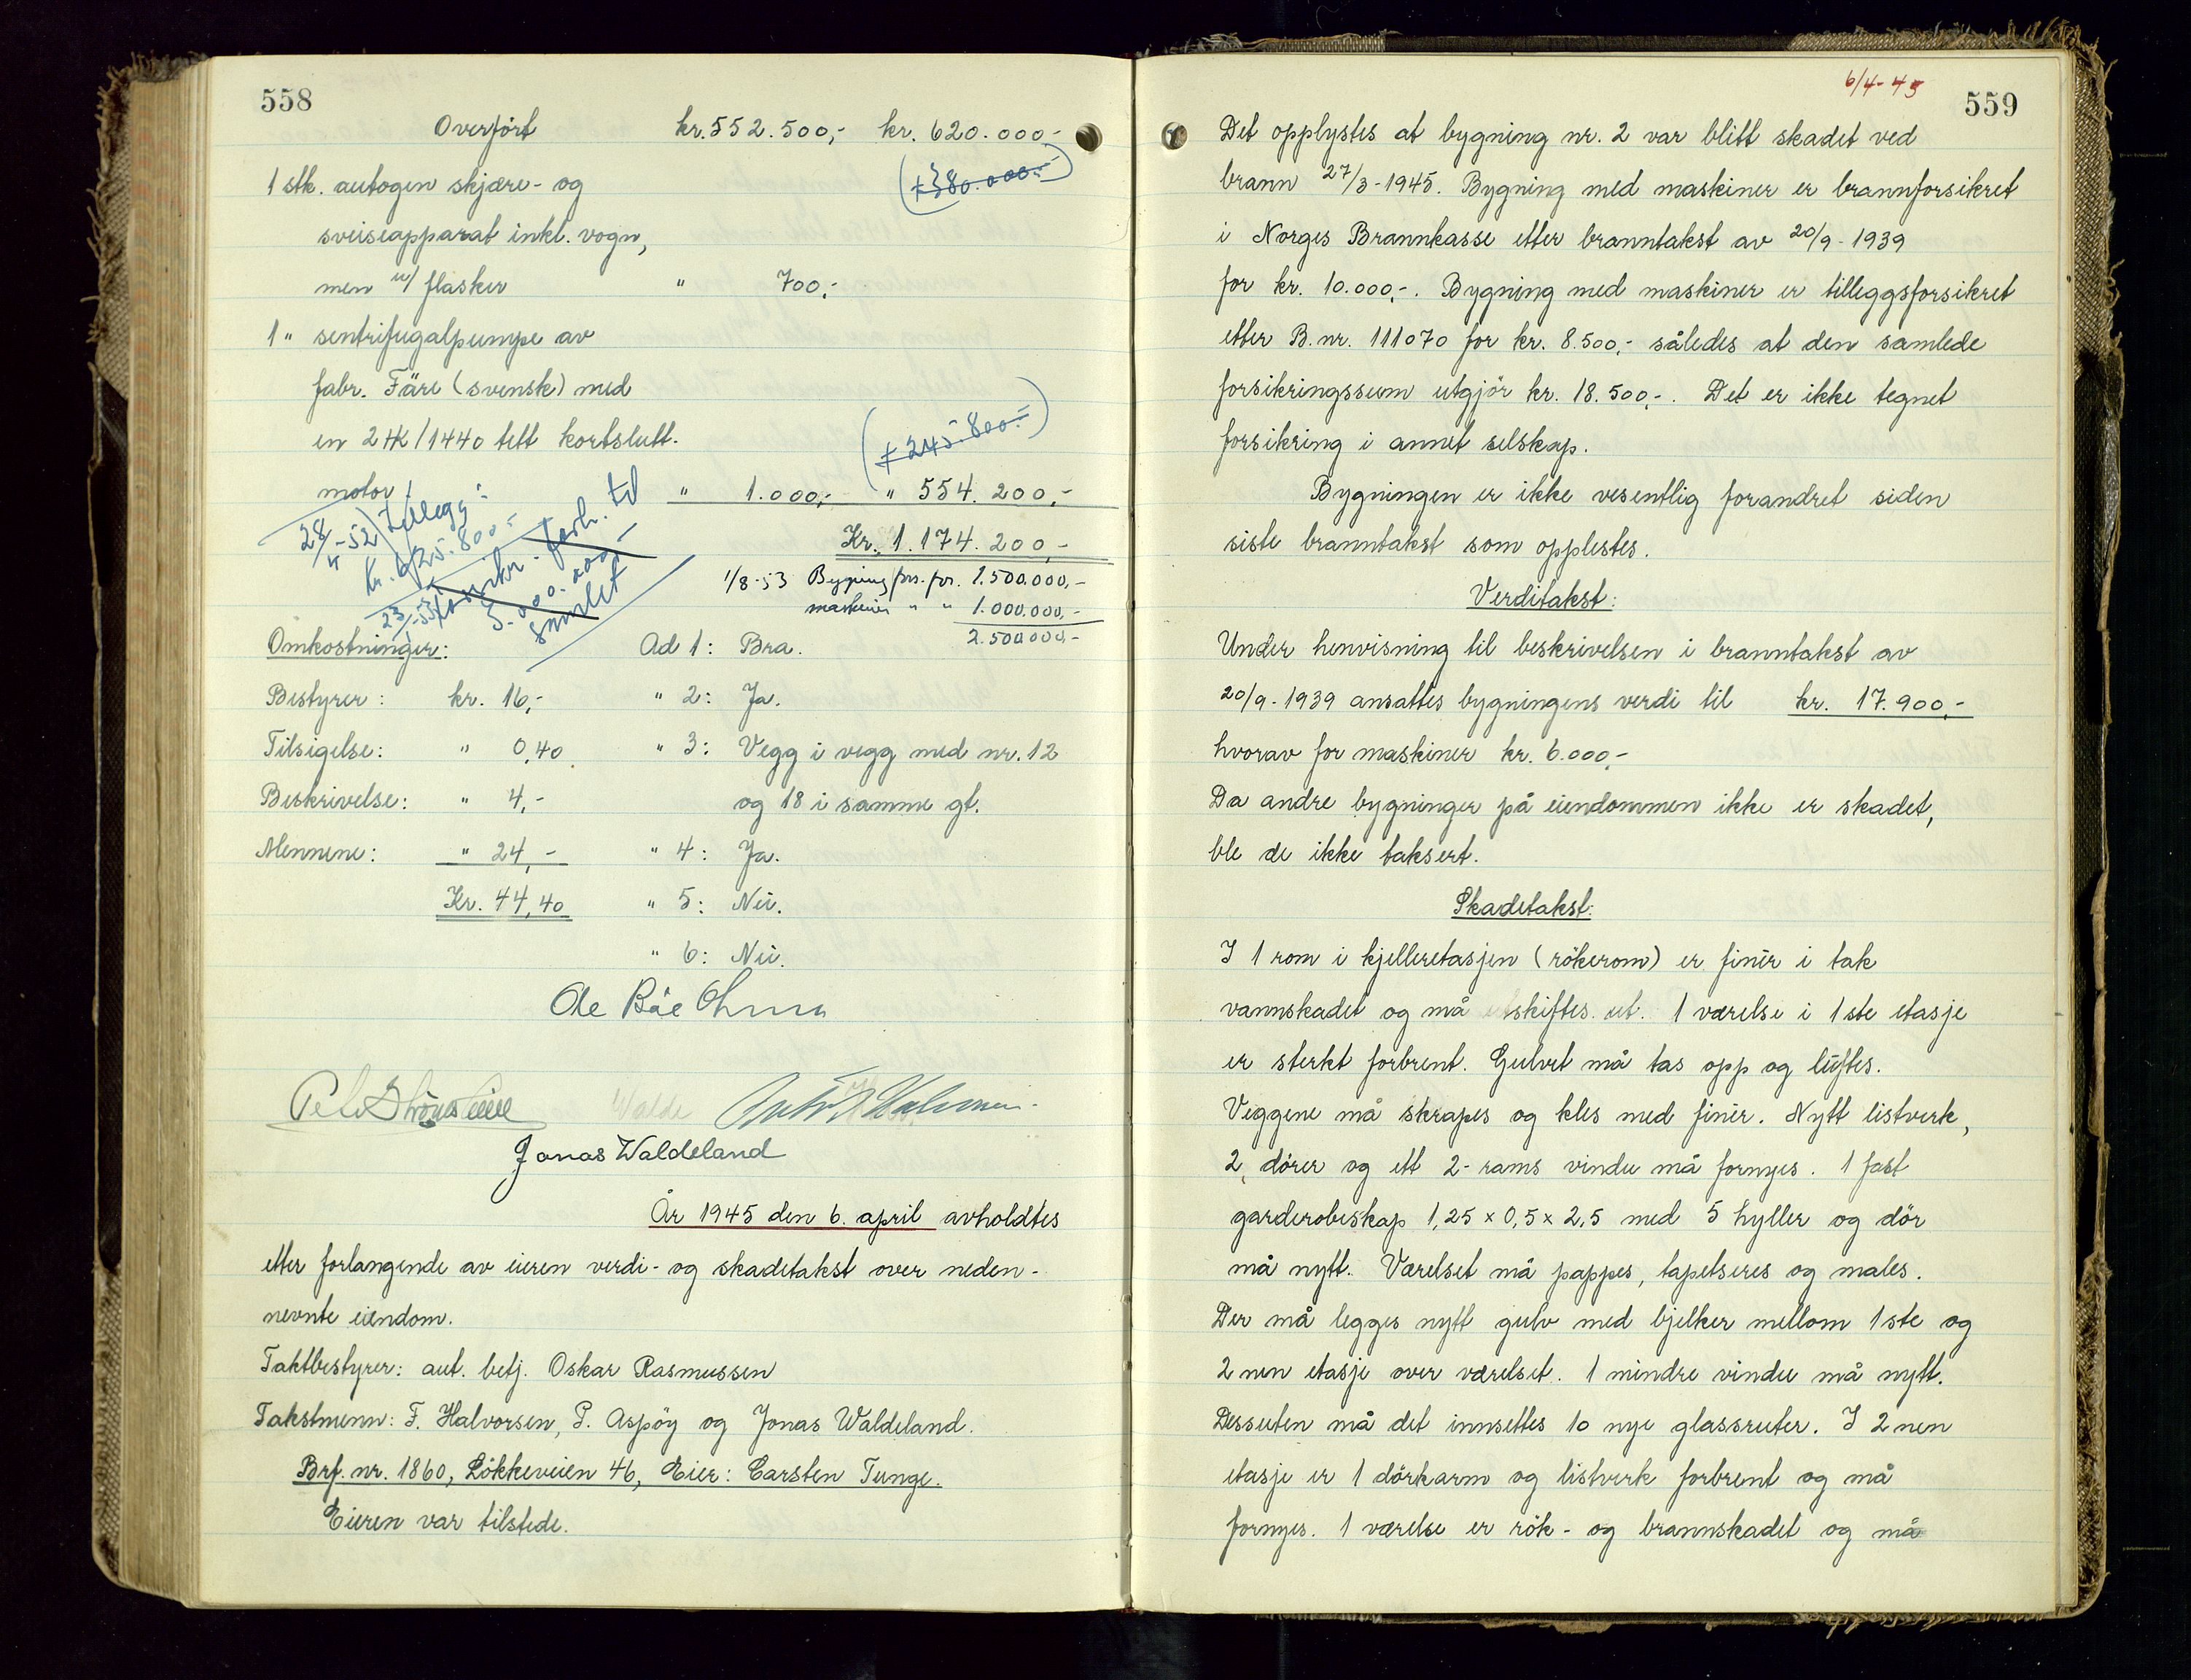 558
Overført kr. 552.500,- kr. 620.000,-
(+ 380.000.-)
1 stk. autogen skjære- og
sveiseapparat inkl. vogn,
men u/ flasker " 700,-
1 " sentrifugalpumpe av
fabr. Färe (svensk) med
en 2 HK/1440 tett kortslutt.
(+ 245.800.-)
motor " 1.000,- " 554.200,-
Kr. 1.174.200,-
28/4-52) Tillegg:
kr. 625.800.-
23/ -53 forh. til
5.000.000,-
samlet
1/8-53 Bygning frs. for. 1.500.000,-
maskiner " " 1.000.000,-
2.500.000,-
Omkostninger: Ad 1: Bra.
Bestyrer: kr. 16,- " 2: Ja.
Tilsigelse: " 0,40 " 3: Vegg i vegg med nr. 12
Beskrivelse: " 4,- og 18 i samme gt.
Mennene: " 24,- " 4: Ja.
Kr. 44,40 " 5: Nei.
" 6: Nei.
Ole Bäe
Jonas Waldeland
År 1945 den 6. april avholdtes
etter forlangende av eieren verdi- og skadetakst over neden-
nevnte eiendom.
Taktbestyrer: aut. betj. Oskar Rasmussen
Takstmenn: F. Halvorsen, P. Aspöy og Jonas Waldeland.
Brf. nr. 1860, Lökkeveien 46, Eier: Carsten Tunge.
Eieren var tilstede.
6/4-45
559
Det opplystes at bygning nr. 2 var blitt skadet ved
brann 27/3-1945. Bygning med maskiner er brannforsikret
i Norges Brannkasse etter branntakst av 20/9-1939
for kr. 10.000,-. Bygning med maskiner er tilleggsforsikret
etter B. nr. 111070 for kr. 8.500,- således at den samlede
forsikringssum utgjör kr. 18.500,-. Det er ikke tegnet
forsikring i annet selskap.
Bygningen er ikke vesentlig forandret siden
siste branntakst som opplestes.
Verditakst:
Under henvisning til beskrivelsen i branntakst av
20/9-1939 ansattes bygningens verdi til kr. 17.900,-
hvorav for maskiner kr. 6.000,-
Da andre bygninger på eiendommen ikke er skadet,
ble de ikke taksert.
Skadetakst:
I 1 rom i kjelleretasjen (rökerom) er finér i tak
vannskadet og må skiftes ut. 1 værelse i 1ste etasje
er sterkt forbrent. Gulvet må tas opp og lüftes.
Veggene må skrapes og kles med finér. Nytt listverk,
2 dörer og ett 2-rams vindu må fornyes. 1 fast
garderobeskap 1,25 x 0,5 x 2,5 med 5 hyller og dör
må nytt. Værelset må pappes, tapetseres og males.
Der må legges nytt gulv med bjelker mellom 1ste og
2nen etasje over værelset. 1 mindre vindu må nytt.
Dessuten må det innsettes 10 nye glassruter. I 2nen
etasje er 1 dörkarm og listverk forbrent og må
fornyes. 1 værelse er rök- og brannskadet og må